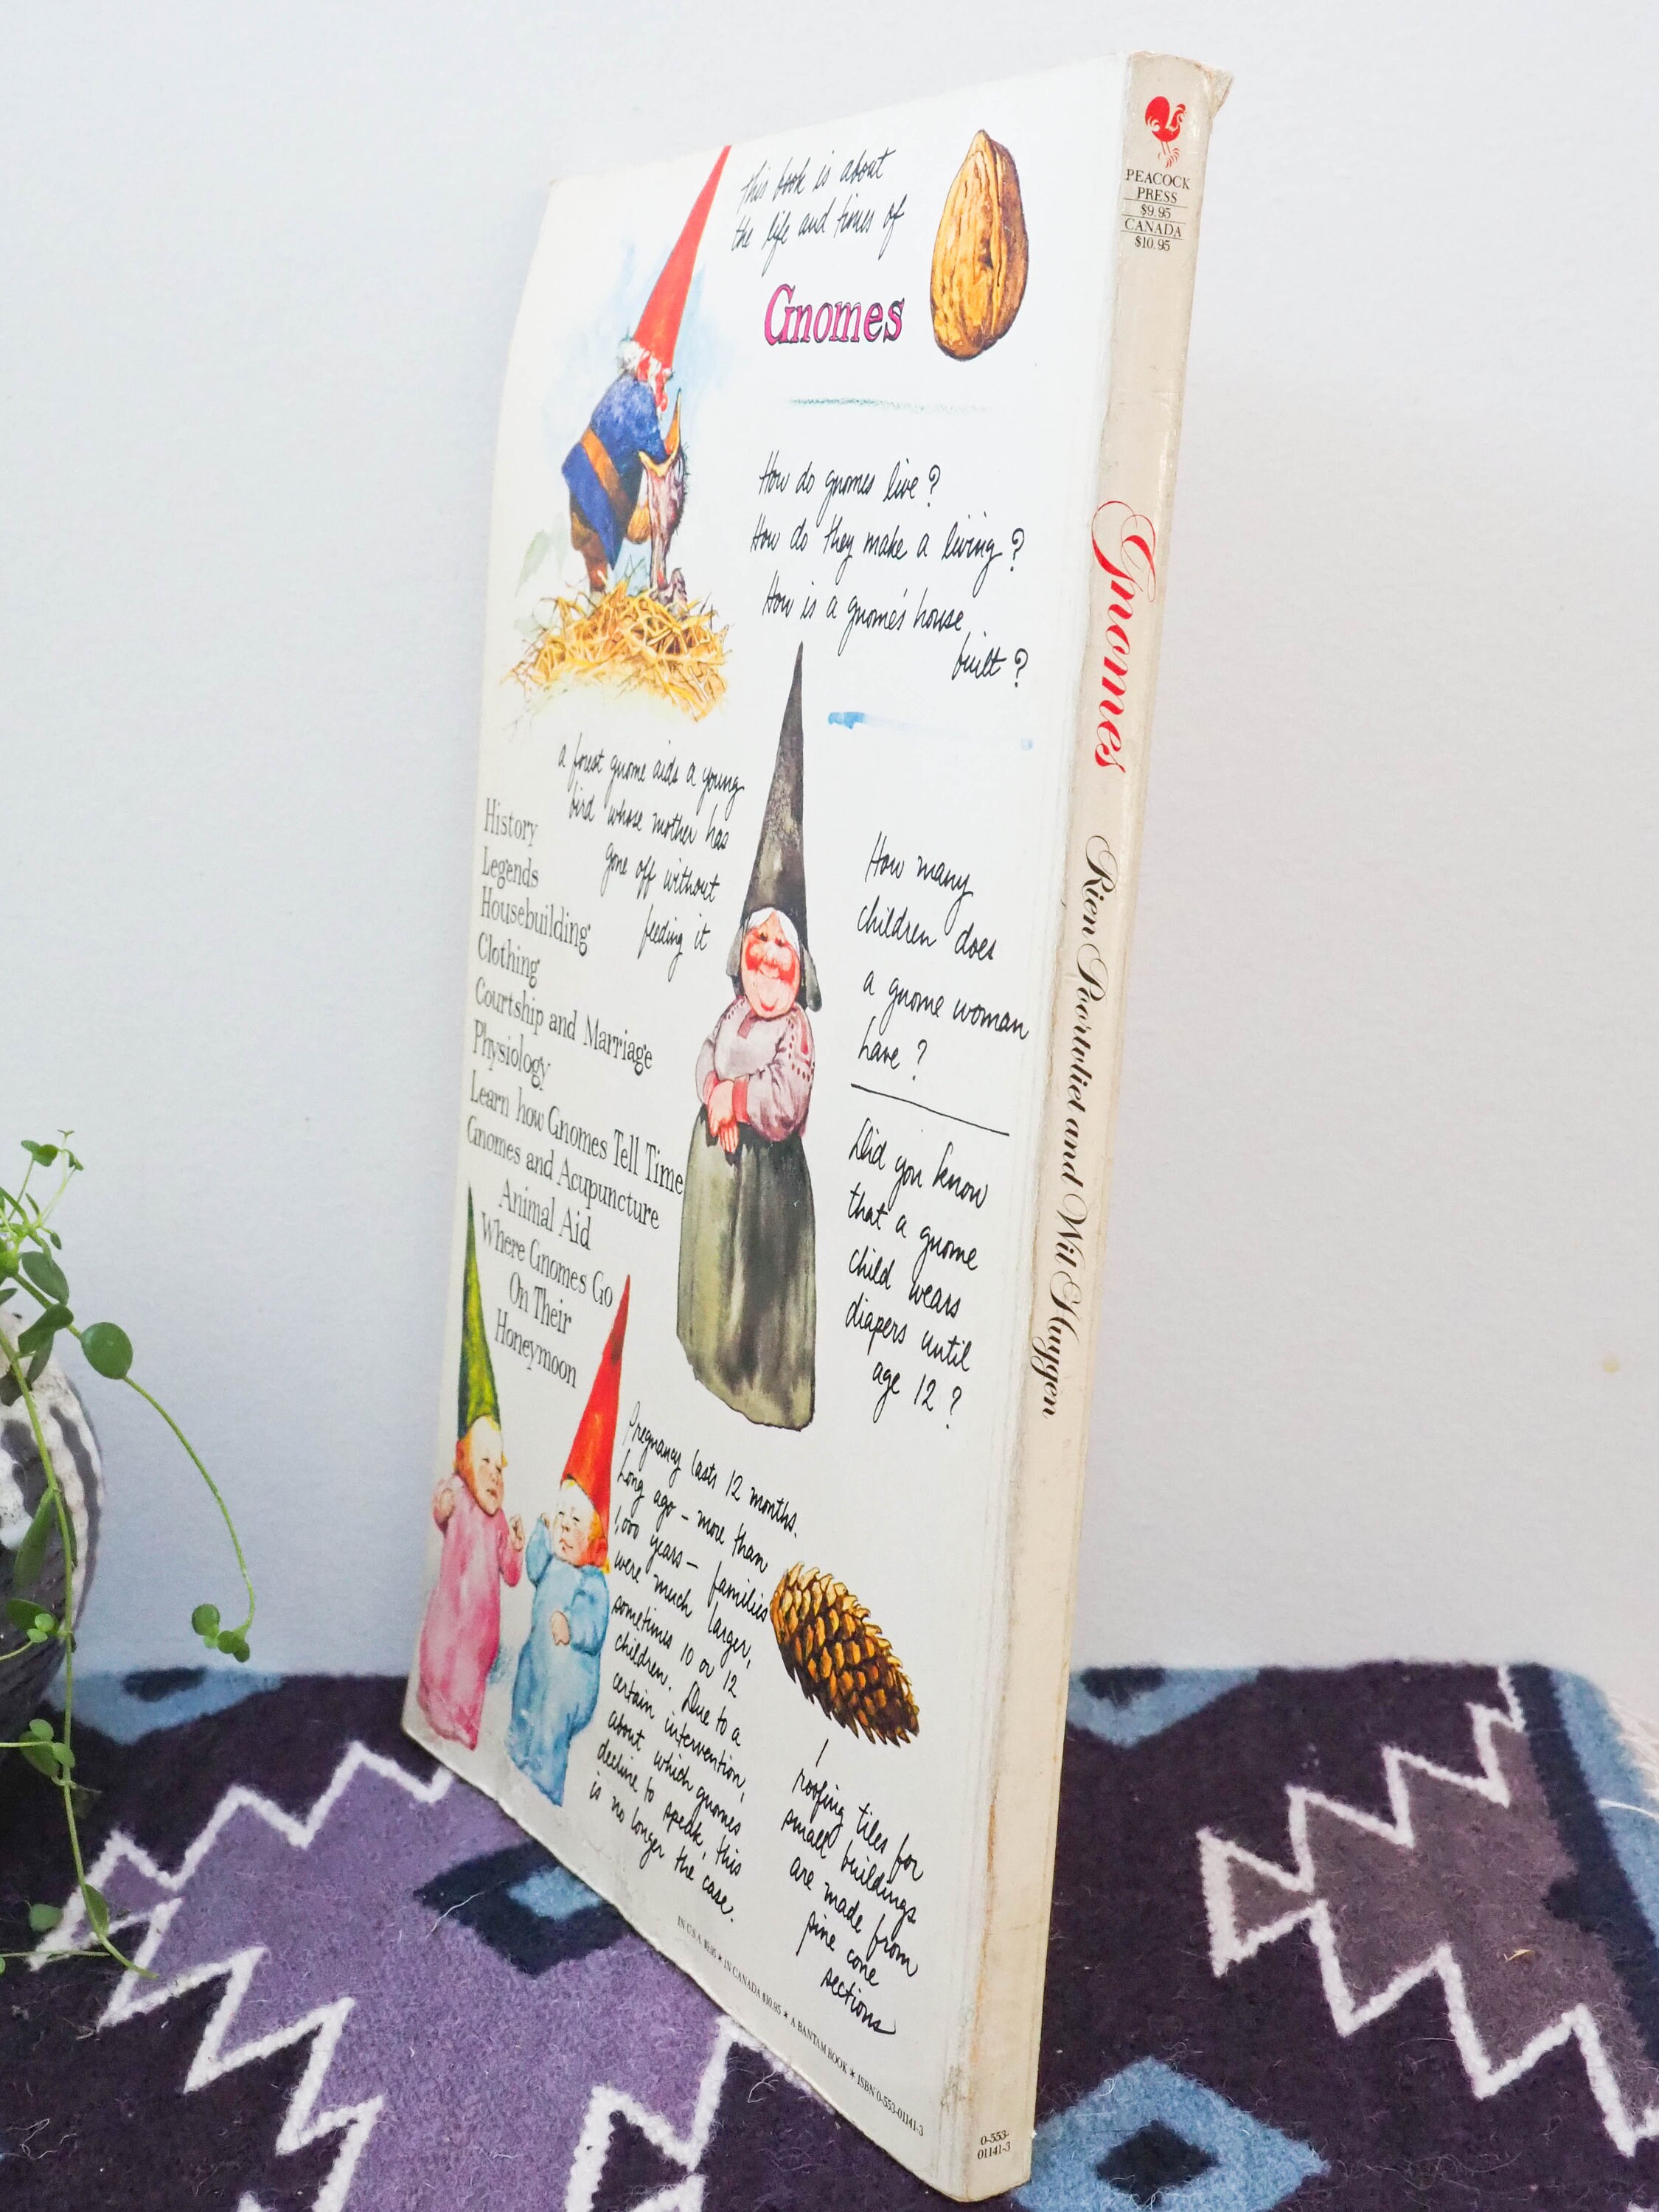 This book is about
the life and times of
Gnomes
How do gnomes live?
How do they make a living?
How is a gnome's house
built?
a forest gnome aids a young
bird whose mother has
gone off without
feeding it
History
Legends
Housebuilding
Clothing
Courtship and Marriage
Physiology
Learn how Gnomes Tell Time
Gnomes and Acupuncture
Animal Aid
Where Gnomes Go
On Their
Honeymoon
How many
children does
a gnome woman
have?
Did you know
that a gnome
child wears
diapers until
age 12?
Pregnancy lasts 12 months.
Long ago – more than
1,000 years – families
were much larger,
sometimes 10 or 12
children. Due to a
certain intervention,
about which gnomes
decline to speak, this
is no longer the case.
roofing tiles for
small buildings
are made from
pine cone
sections
IN U.S.A. $9.95 ★ IN CANADA $10.95 ★ A BANTAM BOOK ★ ISBN 0-553-01141-3
PEACOCK
PRESS
$9.95
CANADA
$10.95
Gnomes Rien Poortvliet and Wil Huygen
0-553-
01141-3